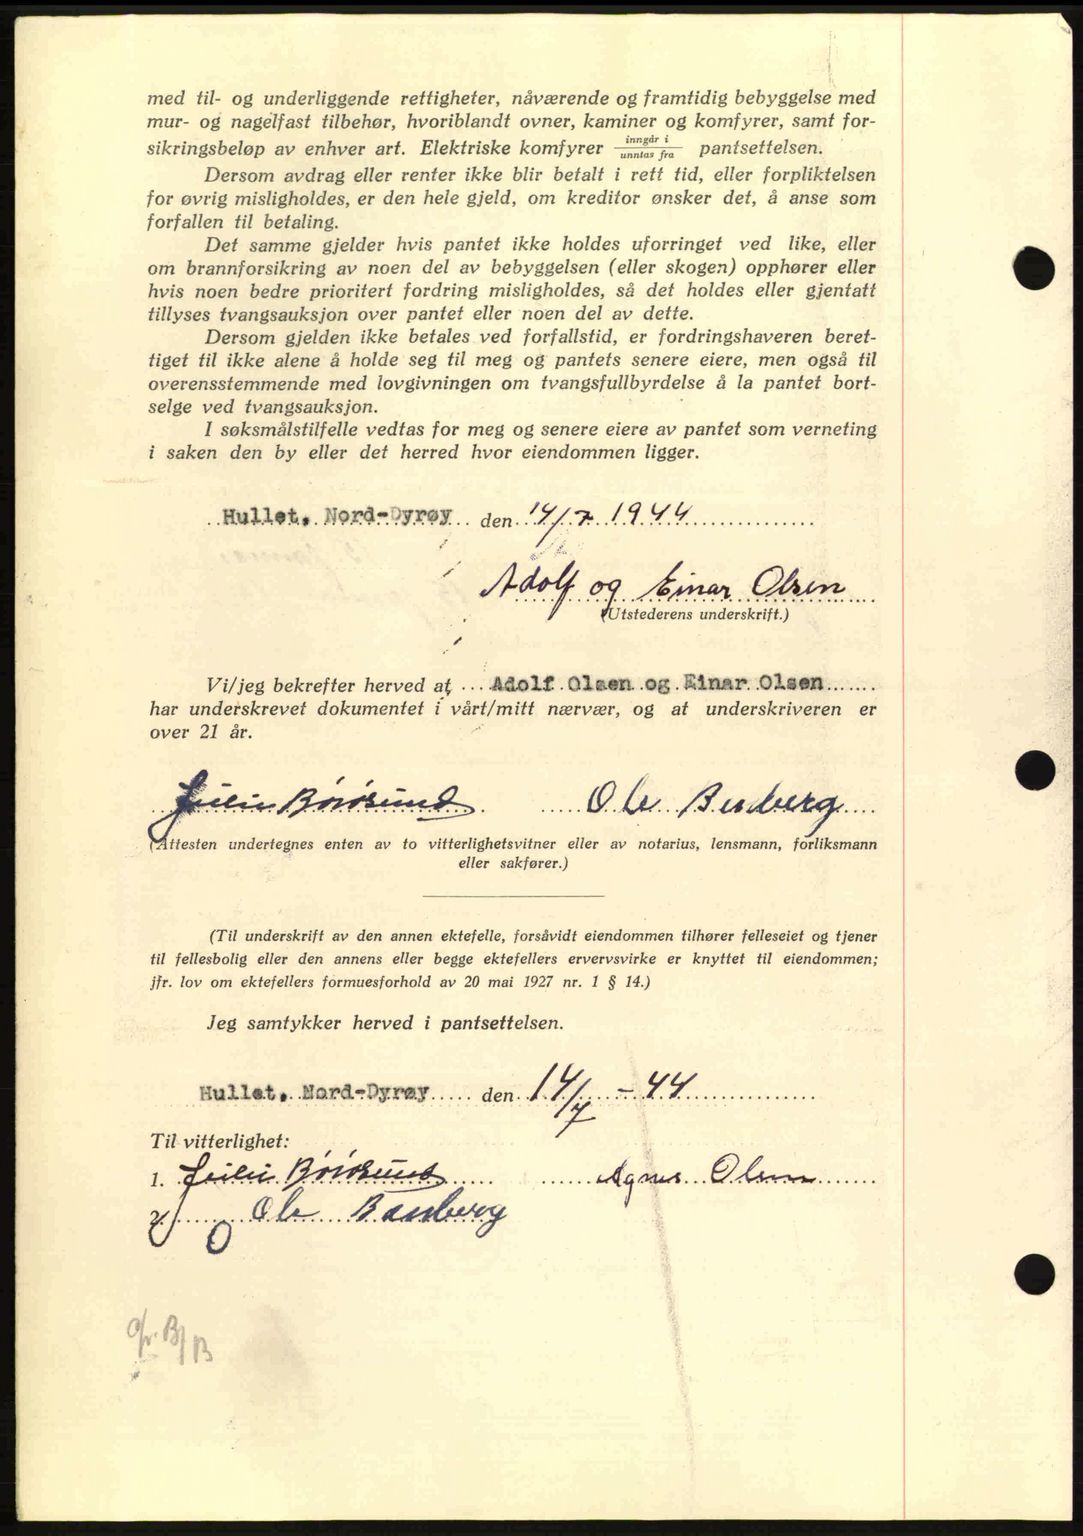 med til- og underliggende rettigheter, nåværende og framtidig bebyggelse med
mur- og nagelfast tilbehør, hvoriblandt ovner, kaminer og komfyrer, samt for-
sikringsbeløp av enhver art. Elektriske komfyrer inngår i / unntas fra pantsettelsen.
Dersom avdrag eller renter ikke blir betalt i rett tid, eller forpliktelsen
for øvrig misligholdes, er den hele gjeld, om kreditor ønsker det, å anse som
forfallen til betaling.
Det samme gjelder hvis pantet ikke holdes uforringet ved like, eller
om brannforsikring av noen del av bebyggelsen (eller skogen) opphører eller
hvis noen bedre prioritert fordring misligholdes, så det holdes eller gjentatt
tillyses tvangsauksjon over pantet eller noen del av dette.
Dersom gjelden ikke betales ved forfallstid, er fordringshaveren beret-
tiget til ikke alene å holde seg til meg og pantets senere eiere, men også til
overensstemmende med lovgivningen om tvangsfullbyrdelse å la pantet bort-
selge ved tvangsauksjon.
I søksmålstilfelle vedtas for meg og senere eiere av pantet som verneting
i saken den by eller det herred hvor eiendommen ligger.
Hullet, Nord-Dyrøy den 14/7 1944
Adolf og Einar Olsen
(Utstederens underskrift.)
Vi/jeg bekrefter herved at Adolf Olsen og Einar Olsen
har underskrevet dokumentet i vårt/mitt nærvær, og at underskriveren er
over 21 år.
Ole
(Attesten undertegnes enten av to vitterlighetsvitner eller av notarius, lensmann, forliksmann
eller sakfører.)
(Til underskrift av den annen ektefelle, forsåvidt eiendommen tilhører felleseiet og tjener
til fellesbolig eller den annens eller begge ektefellers ervervsvirke er knyttet til eiendommen;
jfr. lov om ektefellers formuesforhold av 20 mai 1927 nr. 1 § 14.)
Jeg samtykker herved i pantsettelsen.
Hullet, Nord-Dyrøy den 14/7 - 44
Til vitterlighet:
1. Agnes Olsen
2. Ole